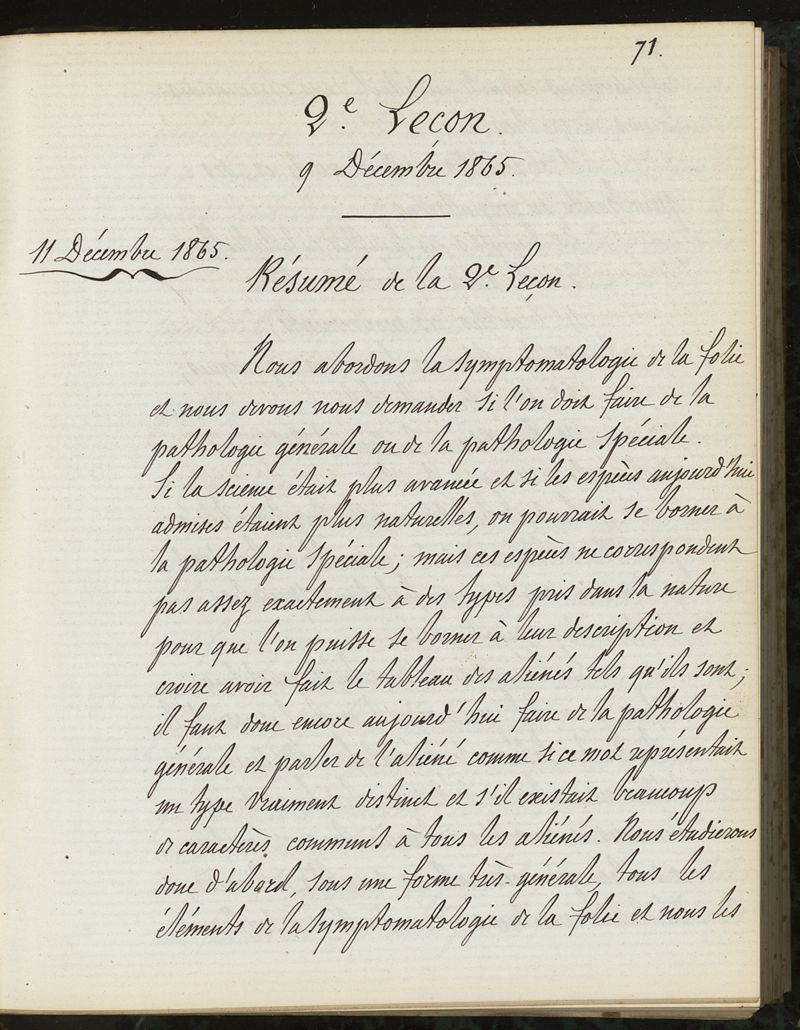 71.
2e. Leçon.
9 Décembre 1865.
11 Décembre 1865.
Résumé de la 2e. Leçon.
Nous abordons la symptomatologie de la folie
et nous devons nous demander si l'on doit faire de la
pathologie générale ou de la pathologie spéciale.
Si la science était plus avancée et si les espèces aujourd'hui
admises étaient plus naturelles, on pourrait se borner à
la pathologie spéciale; mais ces espèces ne correspondent
pas assez exactement à des types pris dans la nature
pour que l'on puisse se borner à leur description et
croire avoir fait le tableau des aliénés tels qu'ils sont;
il faut donc encore aujourd'hui faire de la pathologie
générale et parler de l'aliéné comme si ce mot représentait
un type vraiment distinct et s'il existait beaucoup
de caractères communs à tous les aliénés. Nous étudierons
donc d'abord, sous une forme très-générale, tous les
éléments de la symptomatologie de la folie et nous les